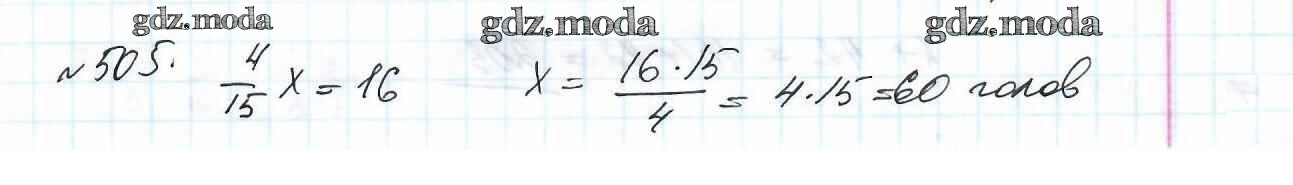 gdz.moda gdz.moda gdz.moda
№ 505. 4/15 x = 16 x = 16·15/4 = 4·15 = 60 голов